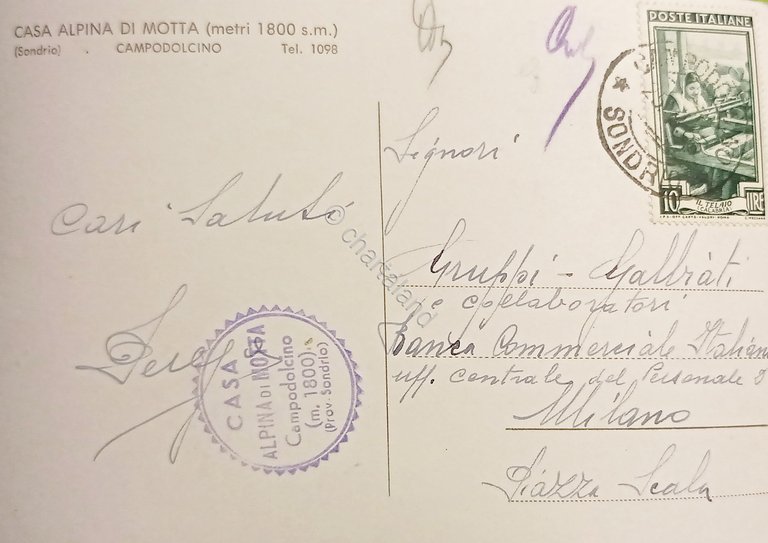 CASA ALPINA DI MOTTA (metri 1800 s.m.)
(Sondrio) . CAMPODOLCINO Tel. 1098
POSTE ITALIANE
SONDRIO
10 LIRE
IL TELAIO
(CALABRIA)
I.P.S. OFF. CARTE-VALORI - ROMA
Cari Saluti
CASA
ALPINA DI MOTTA
Campodolcino
(m. 1800)
(Prov. Sondrio)
Signori
Gruppi - Galbiati
e collaboratori
Banca Commerciale Italiana
uff. centrale del Personale
Milano
Piazza Scala
© chartaland